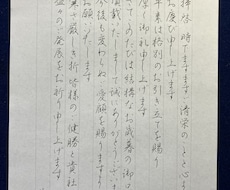 拝啓 時下ますます 清栄のことと心より
お慶び申し上げます
平素は格別のお引き立てを賜り
厚く御礼申し上げます
さてこのたびは結構なお歳暮の御品
頂戴いたしまして誠にありがとうござい
今後も変わらぬ 愛顧を賜りますよう
お願いいたします
寒さ厳しき折皆様のご健勝と貴社
益々のご発展をお祈り申し上げます